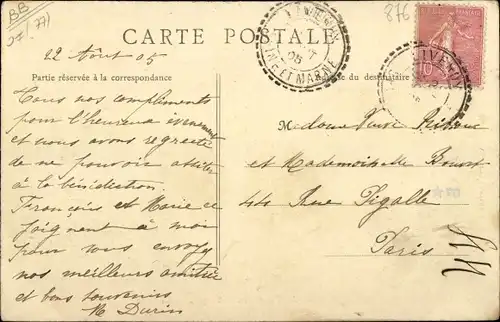 BB
876
CARTE POSTALE
22 Août 05
Partie réservée à la correspondance
du destinataire
ET MARNE
10
Tous nos compliments
pour l'heureux évènement
et nous avons regretté
de ne pouvoir assister
à la bénédiction.
François et Marie se
joignent à moi
pour vous envoyer
nos meilleures amitiés
et bons souvenirs
Durin
Madame Veuve
et Mademoiselle
44 Rue Pigalle
Paris
44